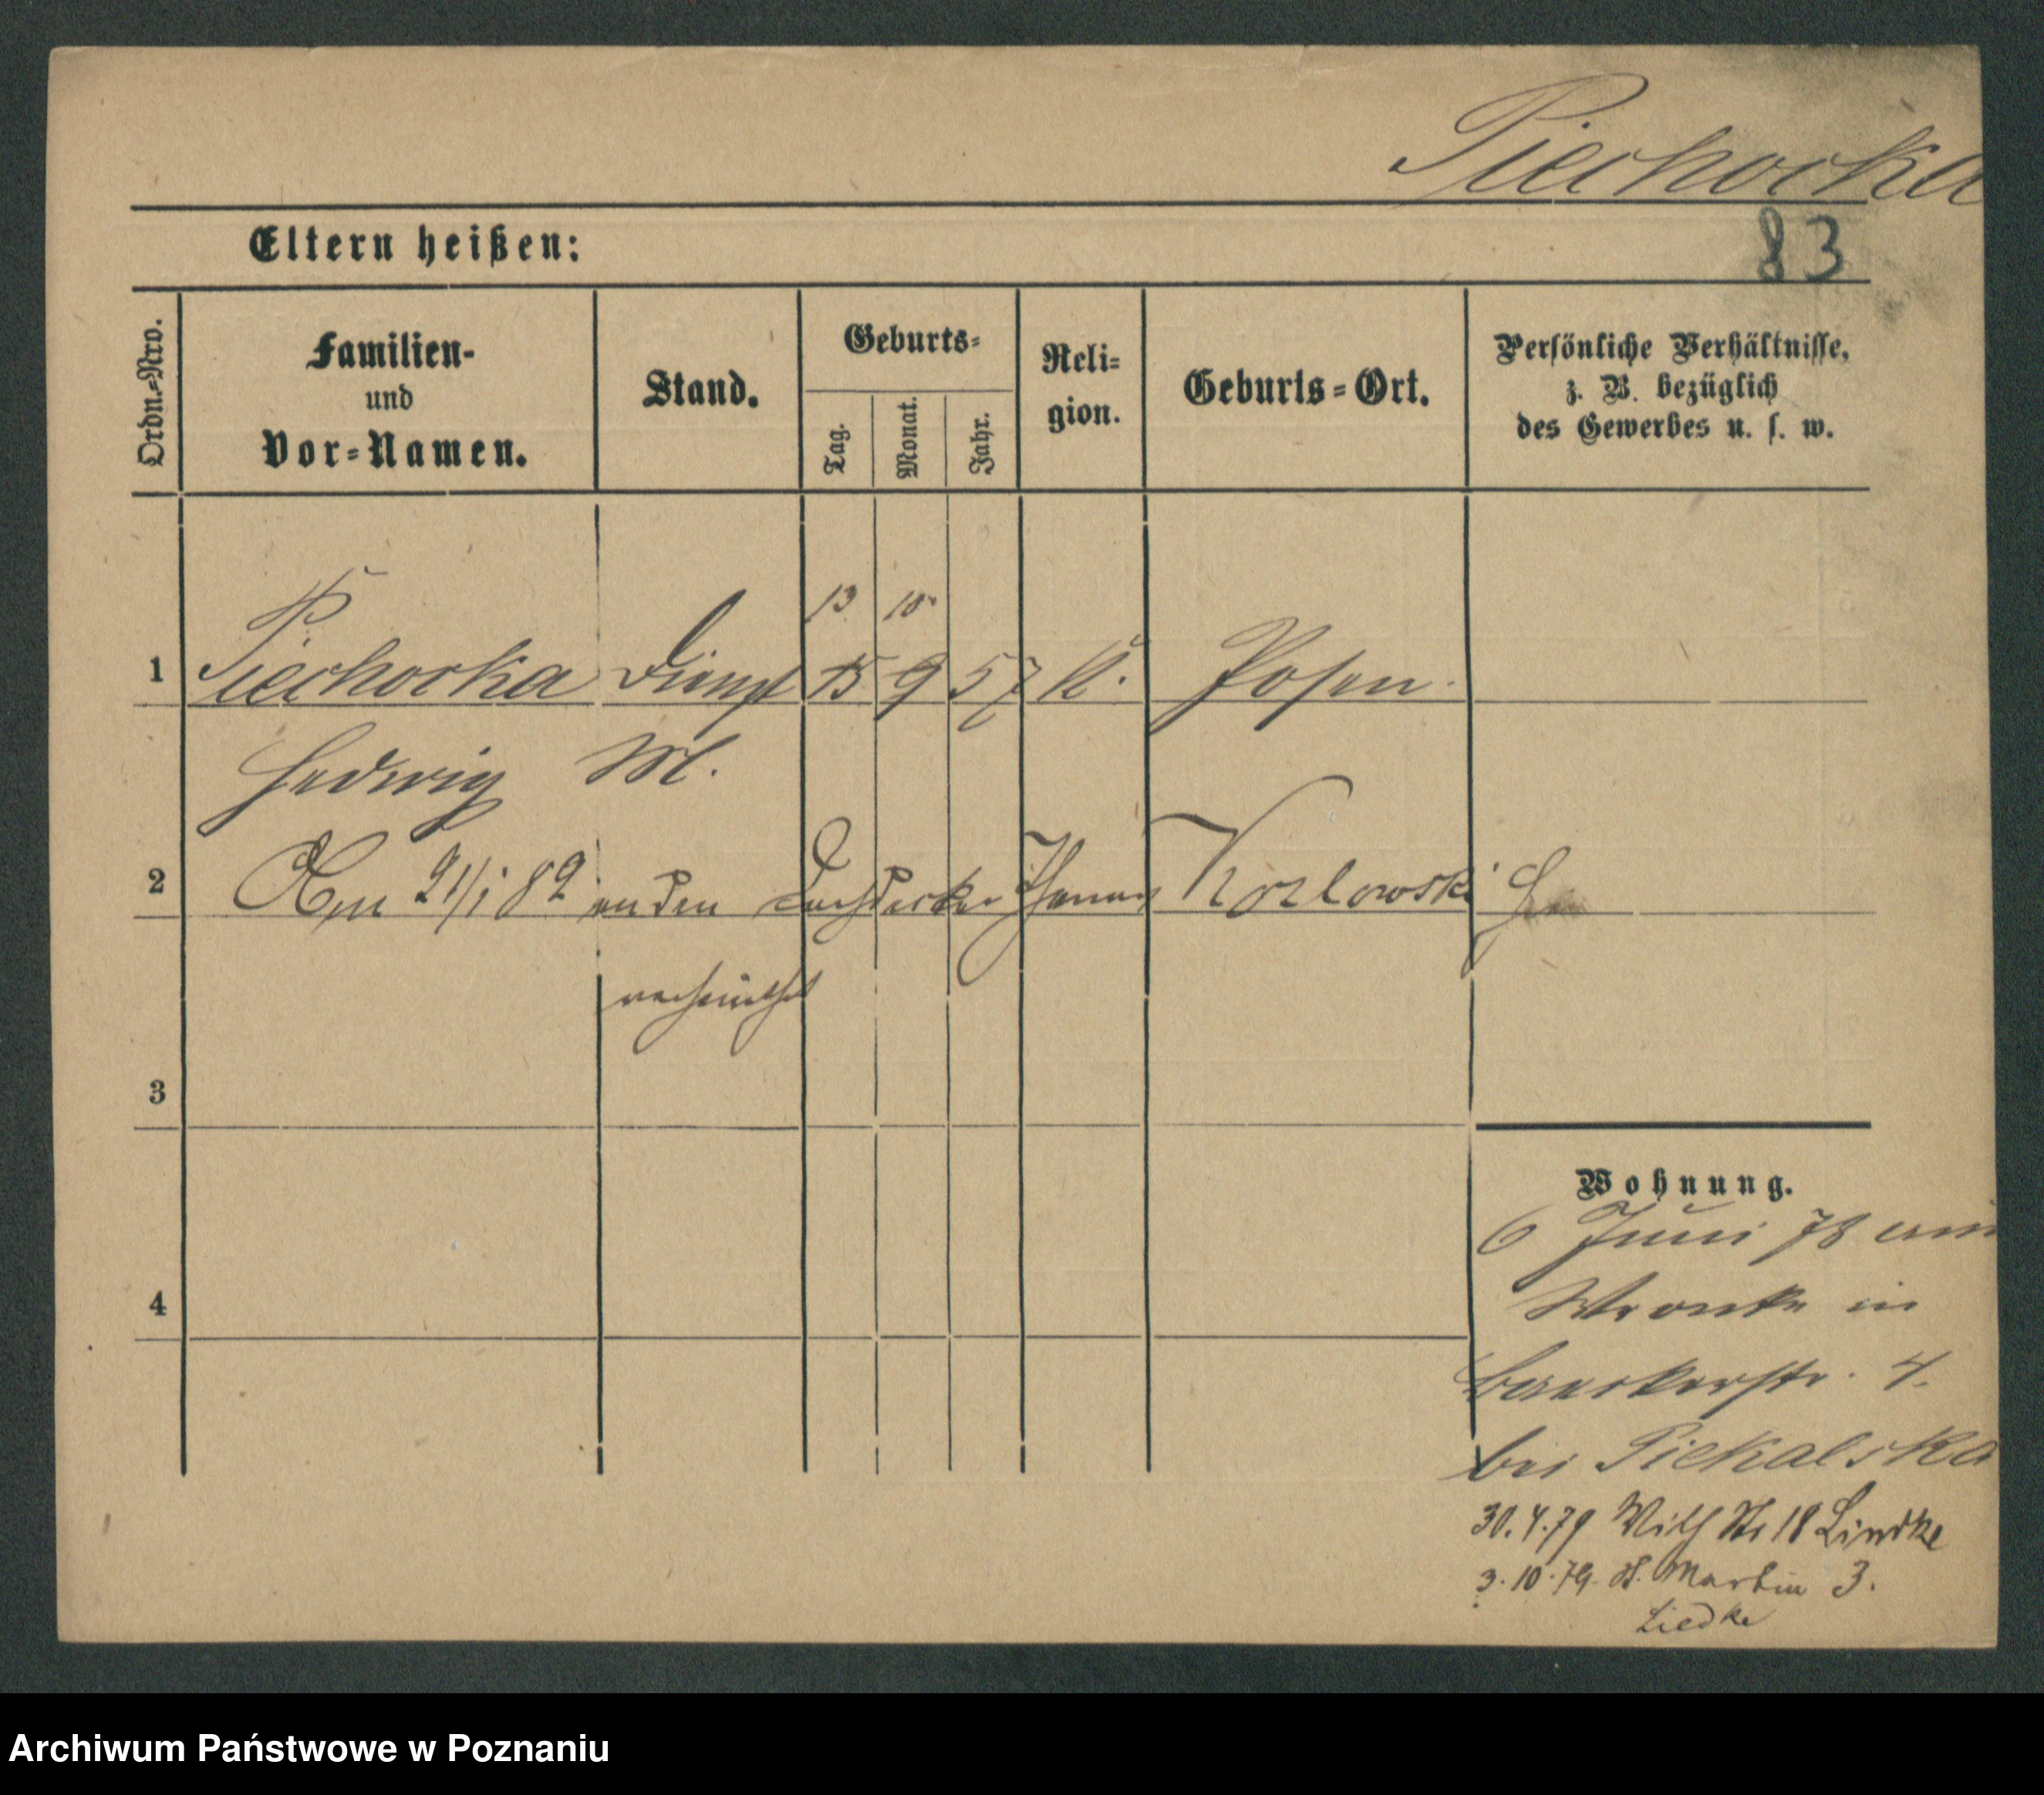 Piechocka
83
Eltern heißen:
Ordn.=Nro.
Familien-
und
Vor=Namen.
Stand.
Geburts=
Tag.
Monat.
Jahr.
Reli=
gion.
Geburts=Ort.
Persönliche Verhältnisse,
z. B. bezüglich
des Gewerbes u. s. w.
13 10
1 Piechocka Dienst 15 9 57 k. Posen
Hedwig M.
2 Am 21/1 82 an den Dachdecker Thomas Kozlowski
verheirathet
3
4
Wohnung.
6 Juni 78 aus
Wronke in
Baeckerstr. 4.
bei Piekalska
30.4.79 Wilh Str 18 Lindke
3.10.79. St. Martin 3.
Liedke
Archiwum Państwowe w Poznaniu